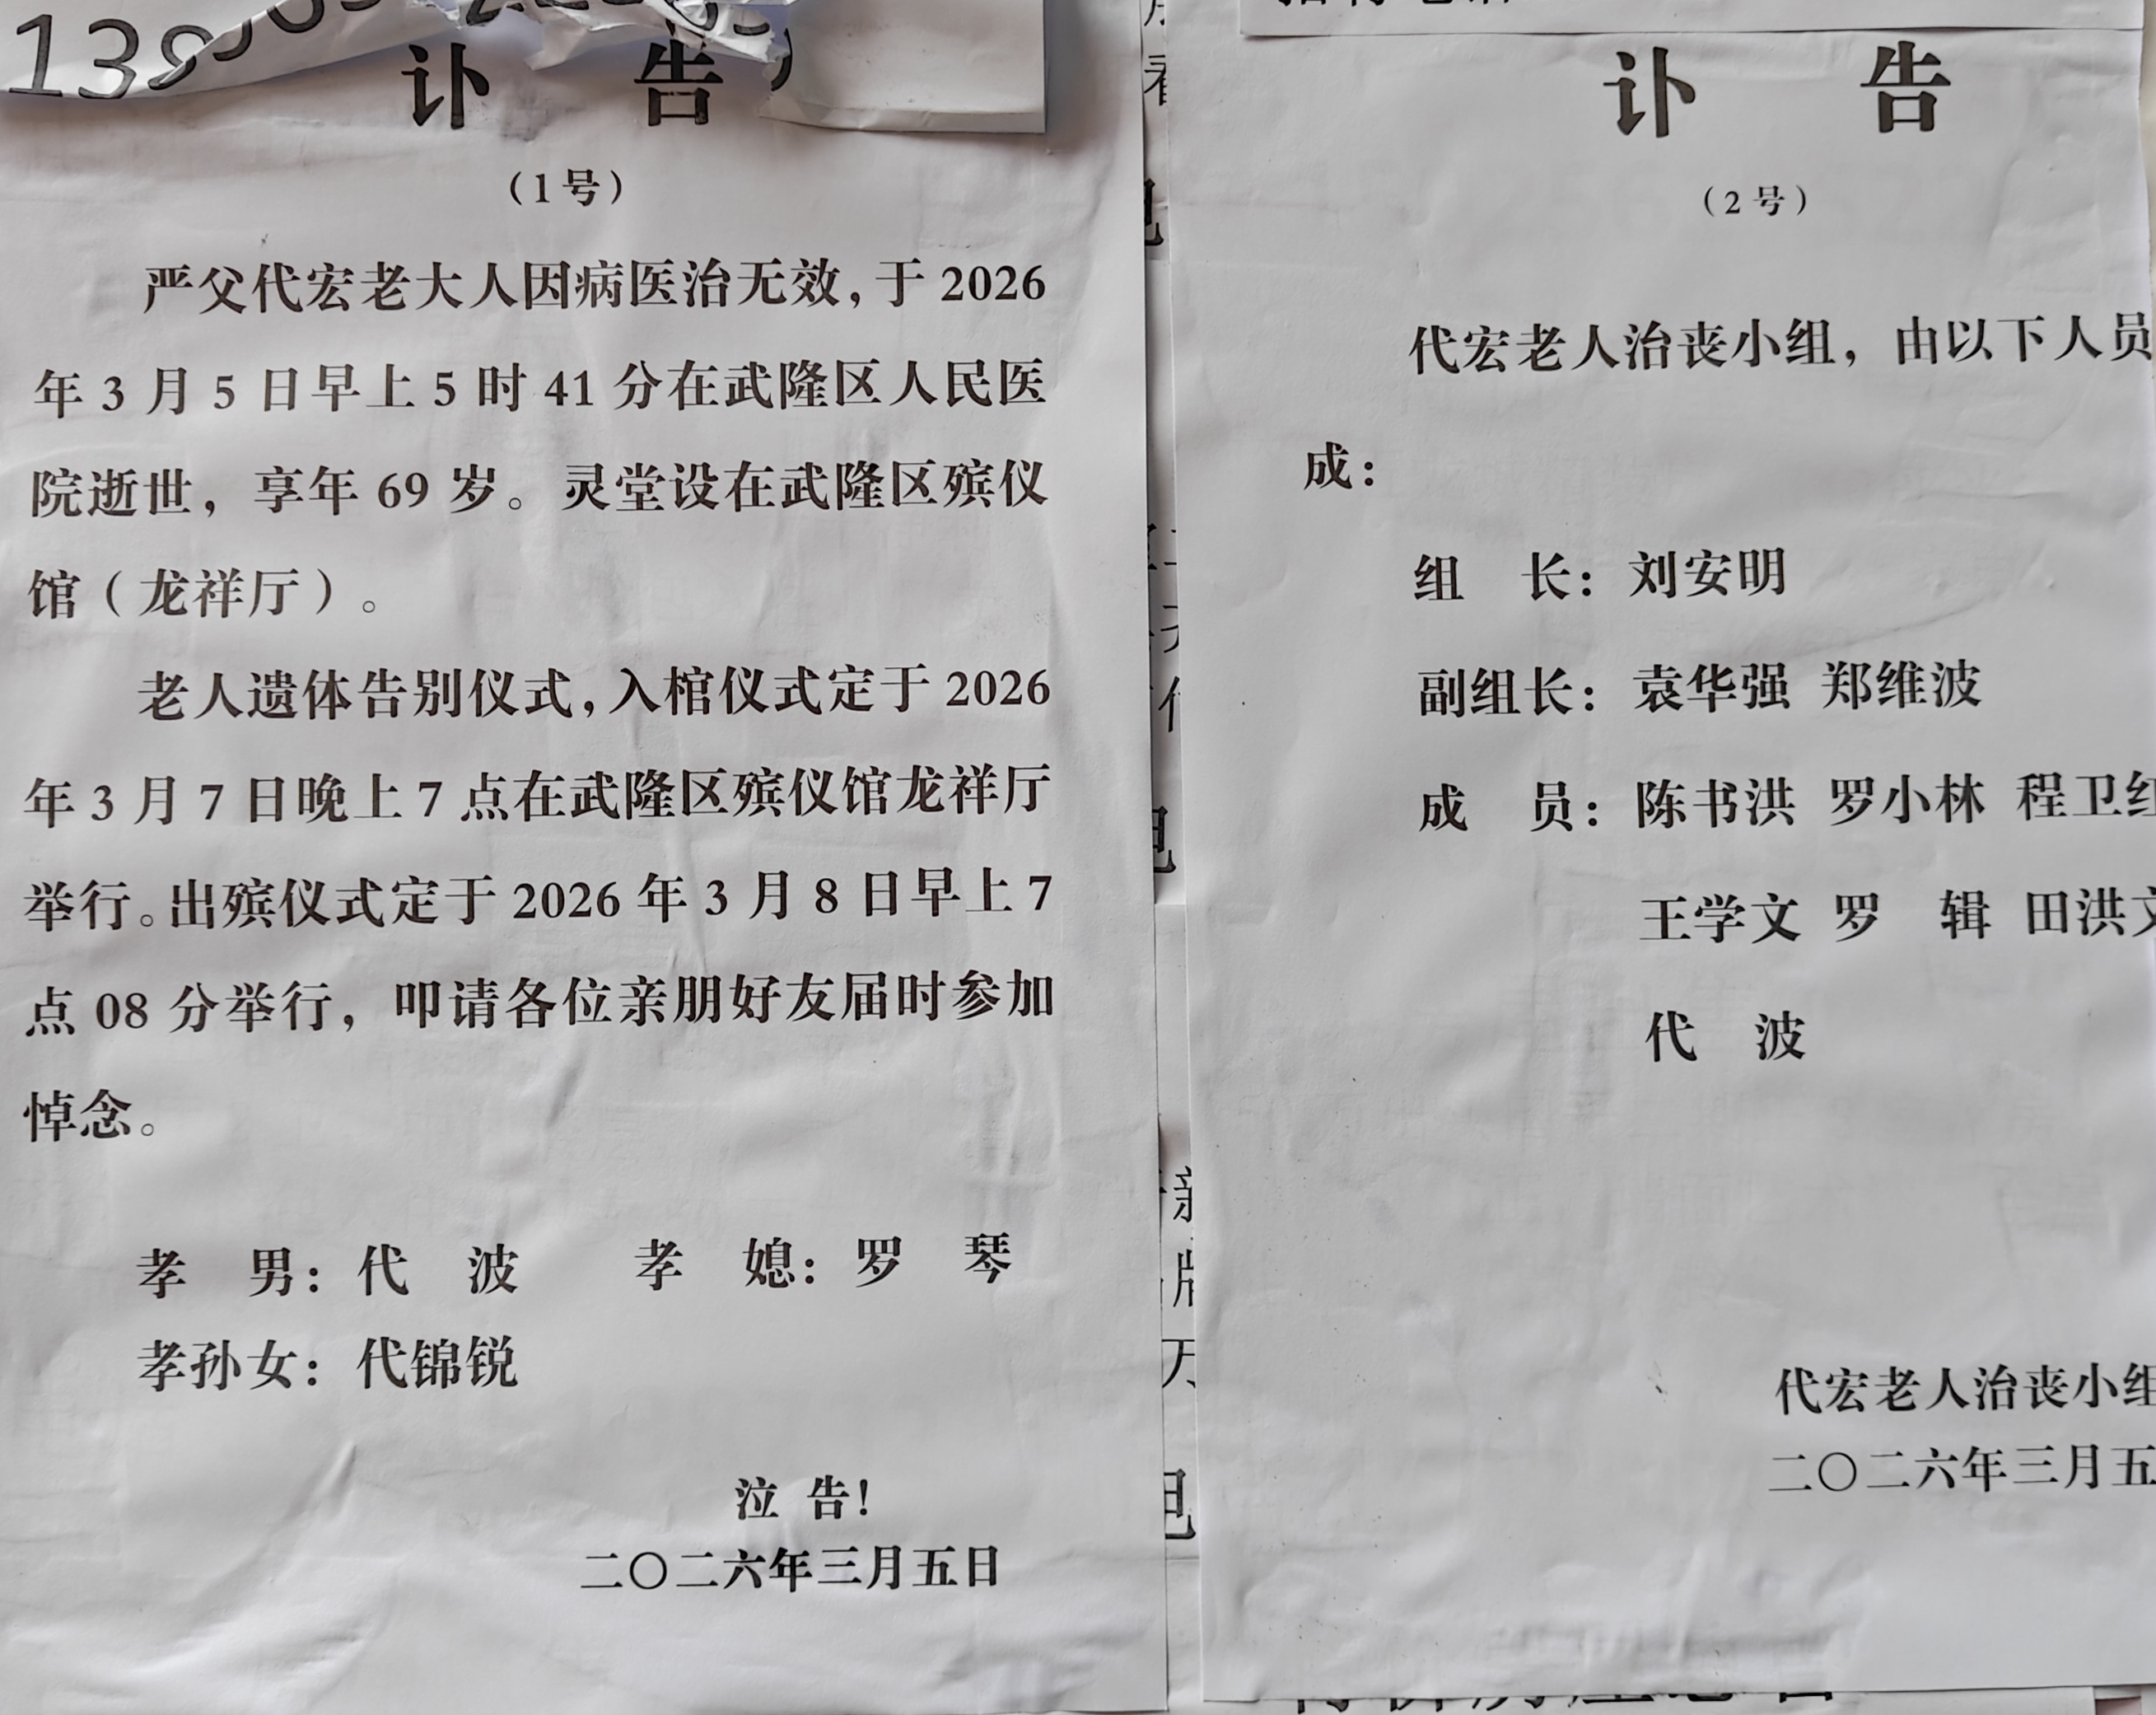 讣 告
（1号）
严父代宏老大人因病医治无效，于 2026
年 3 月 5 日早上 5 时 41 分在武隆区人民医
院逝世，享年 69 岁。灵堂设在武隆区殡仪
馆（龙祥厅）。
老人遗体告别仪式，入棺仪式定于 2026
年 3 月 7 日晚上 7 点在武隆区殡仪馆龙祥厅
举行。出殡仪式定于 2026 年 3 月 8 日早上 7
点 08 分举行，叩请各位亲朋好友届时参加
悼念。
孝 男：代 波 孝 媳：罗 琴
孝孙女：代锦锐
泣 告！
二〇二六年三月五日
讣 告
（2 号）
代宏老人治丧小组，由以下人员
成：
组 长：刘安明
副组长：袁华强 郑维波
成 员：陈书洪 罗小林 程卫红
王学文 罗 辑 田洪文
代 波
代宏老人治丧小组
二〇二六年三月五